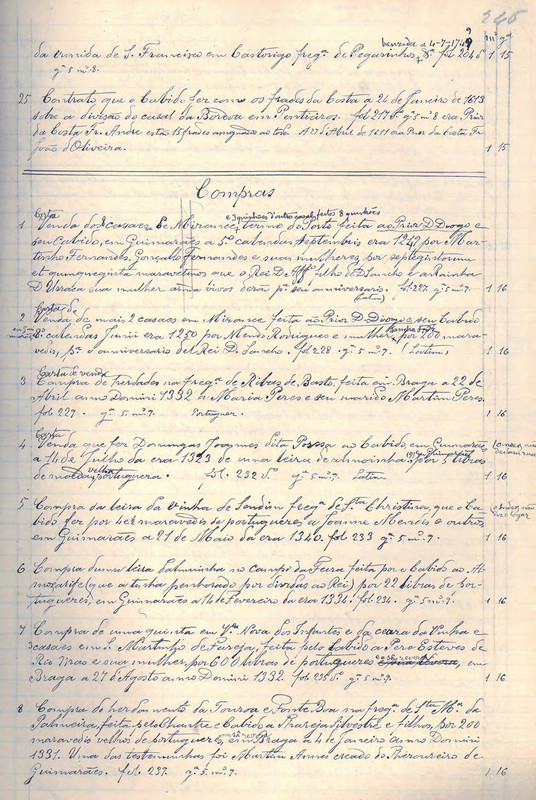 245
benzida a 4-7-1742
mç gt
da ermida de S. Francisco em Castorigo freg.ª de Pegarinhos, Dº. fol 204 v 1 15
gª 5 mº 8.
25 Contrato que o Cabido fez como os frades da Costa a 24 de Janeiro de 1613
sobre a divisão do casal da Bordoa em Penticiros. fol 217 vº. gª 5 mº 8 era Prior
da Costa Fr. André estão 15 frades ao todo. A 27 d'Abril de 1611 era Prior da Costa Fr.
João d'Oliveira. 1 15
Compras
Carta e 3 quinhões d'outro casal, feitos 8 quinhões
1 Venda dos 2 casaes de Mirance, termo do Porto feita ao Prior D. Diogo e
seu Cabido, em Guimarães a 5º calendas septembris era 1247 por Mar-
tinho Fernandes, Gonçallo Fernandes e suas mulheres por septegistorum
et quinquaginta maravetinos que o Rei D. Affº filho do D. Sancho e a Rainha
D Urraca sua mulher ainda vivos derão pª seu anniversario. fol. 227. gª 5 mº 7. 1 16
(Latim)
Carta de
2 Venda de mais 2 casaes em Mirance feita ao Prior D. Diogo e seu Cabido
calendas Junii era 1250 por Mendo Rodrigues e mulher, por 200 mara-
vedis, pª o anniversario del Rei D. Sancho. fol 228. gª 5 mº 7. (Latim) 1 16
Carta de venda
3 Compra de herdades na fregª de Ribas de Basto, feita em Braga a 22 de
Abril anno Domini 1332 a Maria Peres e seu marido Martim Peres.
fol. 229. gª 5 mº 7. Portuguez. 1 16
Carta
4 Venda que fez Domingas Joannes dita Possa ao Cabido, em Guimarães
a 14 de Julho da era 1323 de uma leira de almoinha por 5 libras
de moeda velha portuguera. fol. 232 vº gª 5 mº 7. Latim 1 16
5 Compra da leira da vinha de Sendim fregª de Stª Christina, que o Ca-
bido fez por 402 maravedis de portugueses, a Joanne Mendes e outros
em Guimarães a 21 de Maio da era 1340. fol 233 gª 5 mº 7. 1 16
6 Compra duma leira d'almuinha no campo da Feira feita por o Cabido ao Al-
moxarife (que a tinha penhorado por dividas ao Rei) por 22 libras de Por-
tugueses, em Guimarães a 14 de Fevereiro da era 1334. fol 234. gª 5 mº 7. 1 16
7 Compra de uma quinta em Vª Nova dos Infantes e da ceara da Vinha e
3 casaes em S. Martinho de Fareja, feita pelo Cabido a Pero Esteves de
e sua mulher, por 600 libras de portugueses em
Braga a 27 d'Agosto anno Domini 1332. fol 235 vº gª 5 mº 7. 1 16
8 Compra do herdamento da Touroa e Fonte Boa na fregª de Stª Mª da
Palmeira, feita pelo Chantre e Cabido a Silvestre e filhos, por 200
maravedis velhos de portugueses, em Braga a 4 de Janeiro anno Domini
1331. Uma das testemunhas foi Martim Annes creado do Thesoureiro de
Guimarães. fol. 237. gª 5 mº 7. 1 16